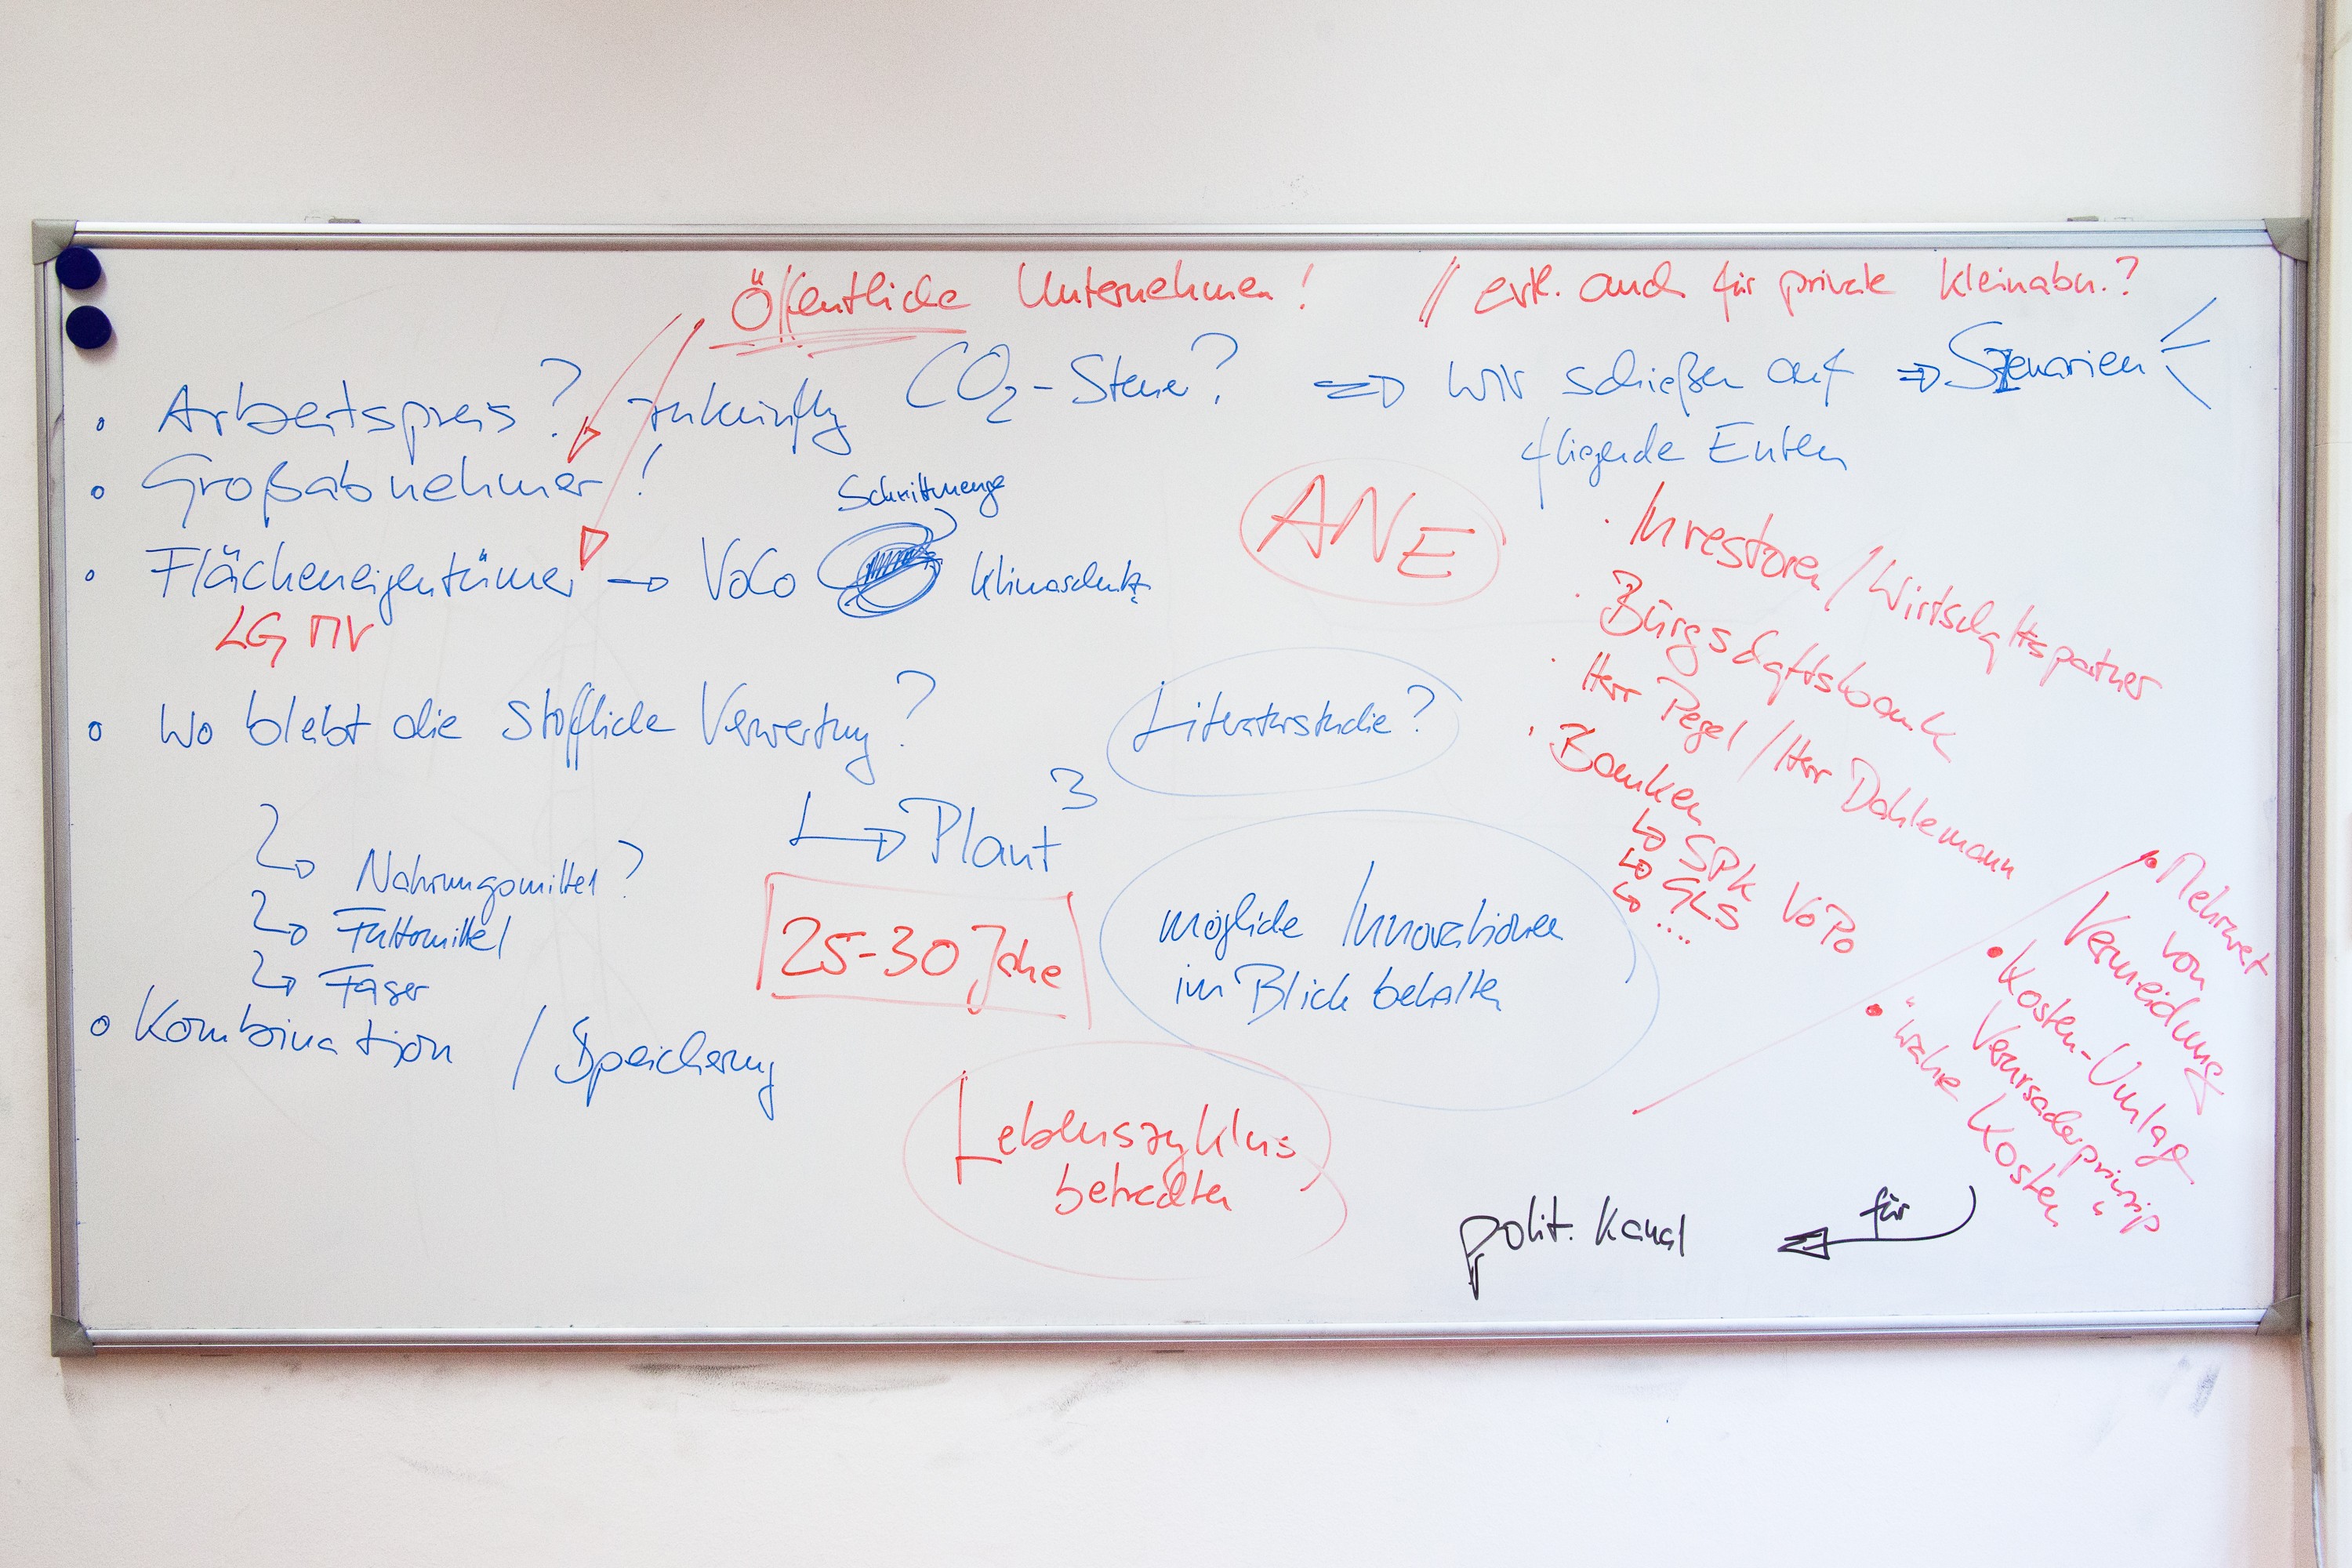 Öffentliche Unternehmen! // evtl. auch für private Kleinabn.?
• Arbeitspreis? zukünftig CO2-Steuer? ⇒ wir schießen auf ⇒ Szenarien
fliegende Enten
• Großabnehmer!
Schnittmenge
• Flächeneigentümer → VoCo Klimaschutz
LG MV
ANE
• Wo bleibt die stoffliche Verwertung?
Literaturstudie?
↳ Plant³
↳ Nahrungsmittel?
↳ Futtermittel
↳ Faser
25-30 Jahre
mögliche Innovationen
im Blick behalten
• Kombination / Speicherung
Lebenszyklus
betrachten
• Investoren / Wirtschaftspartner
• Bürgschaftsbank
• Herr Pegel / Herr Dahlemann
• Banken
↳ SPK VoPo
↳ GLS
↳ ....
• Mehrwert
von
Vermeidung
• Kosten-Umlage
Verursacherprinzip
• "wahre Kosten"
für
polit. Kanal